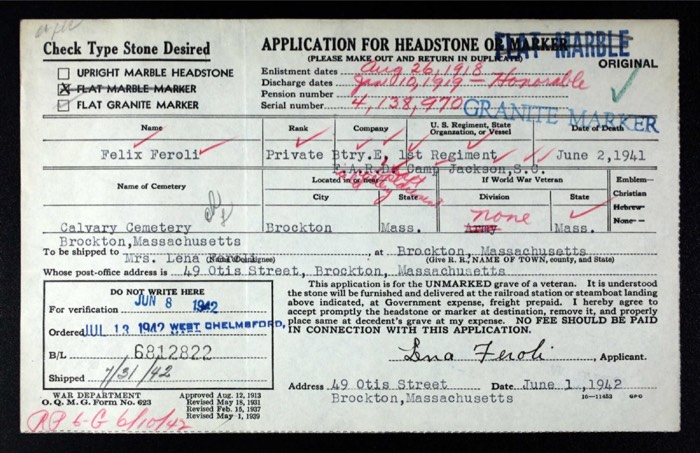 Check Type Stone Desired
UPRIGHT MARBLE HEADSTONE
X FLAT MARBLE MARKER
FLAT GRANITE MARKER
APPLICATION FOR HEADSTONE OR MARKER
FLAT MARBLE
(PLEASE MAKE OUT AND RETURN IN DUPLICATE)
ORIGINAL
Enlistment dates Aug 26, 1918
Discharge dates Jan 10, 1919 - Honorable
Pension number
Serial number 4,138,970
GRANITE MARKER
Name Rank Company U. S. Regiment, State Organization, or Vessel Date of Death
Felix Feroli Private Btry.E, 1st Regiment June 2,1941
F.A.R.D. Camp Jackson,S.C.
Name of Cemetery Located in or near If World War Veteran Emblem—
City State Division State Christian
Hebrew
None
none
Army
Calvary Cemetery Brockton Mass. Mass.
Brockton,Massachusetts
To be shipped to Mrs. Lena Feroli, at Brockton, Massachusetts
(Give R. R. NAME OF TOWN, county, and State)
Whose post-office address is 49 Otis Street, Brockton, Massachusetts
DO NOT WRITE HERE
For verification JUN 8 1942
Ordered JUL 13 1942 WEST CHELMSFORD,
B/L 6812822
Shipped 7/31/42
This application is for the UNMARKED grave of a veteran. It is understood
the stone will be furnished and delivered at the railroad station or steamboat landing
above indicated, at Government expense, freight prepaid. I hereby agree to
accept promptly the headstone or marker at destination, remove it, and properly
place same at decedent's grave at my expense. NO FEE SHOULD BE PAID
IN CONNECTION WITH THIS APPLICATION.
Lena Feroli, Applicant.
Address 49 Otis Street Date June 1,1942
Brockton,Massachusetts
16—11453 GPO
WAR DEPARTMENT
O. Q. M. G. Form No. 623
Approved Aug. 12, 1913
Revised May 18, 1931
Revised Feb. 15, 1937
Revised May 1, 1939
6/10/42